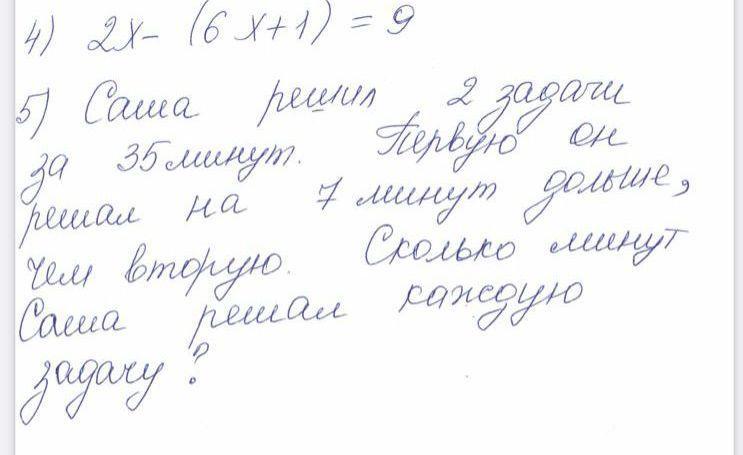 4) 2x- (6x+1) = 9
5) Саша решил 2 задачи
за 35 минут. Первую он
решал на 7 минут дольше,
чем вторую. Сколько минут
Саша решал каждую
задачу?